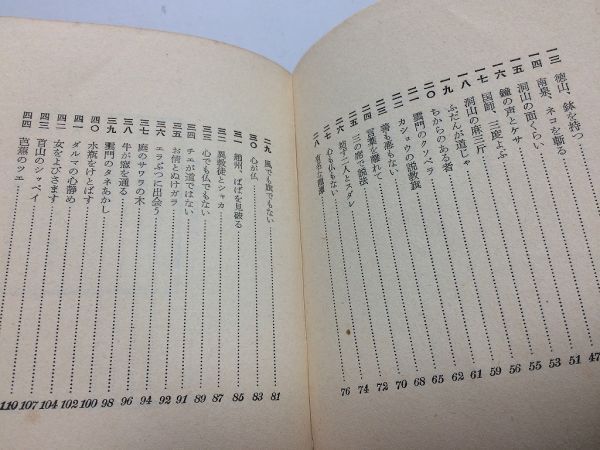 一三 徳山、鉢を持つ 47
一四 南泉、ネコを斬る 51
一五 洞山の面くらい 53
一六 鐘の声とケサ 55
一七 国師、三度よぶ 56
一八 洞山の麻三斤 59
一九 ふだんが道じゃ 61
二〇 ちからのある者 62
二一 雲門のクソベラ 65
二二 カショウの説教旗 68
二三 善も悪もない 70
二四 言葉を離れて 72
二五 三の席で説法 74
二六 坊主二人とスダレ
二七 心も仏もない
二八 76
二九 風でも旗でもない 81
三〇 心が仏 83
三一 趙州、ばばを見破る 85
三二 異教徒とシャカ 87
三三 心でも仏でもない 89
三四 チエが道ではない 91
三五 お倩とぬけガラ 92
三六 エラぶつに出会う 94
三七 庭のサワラの木 96
三八 牛が窓を通る 98
三九 雲門のタネあかし 98
四〇 水瓶をけとばす 100
四一 ダルマの心静め 102
四二 女をよびさます 104
四三 首山のシッペイ 107
四四 芭蕉のツエ 110